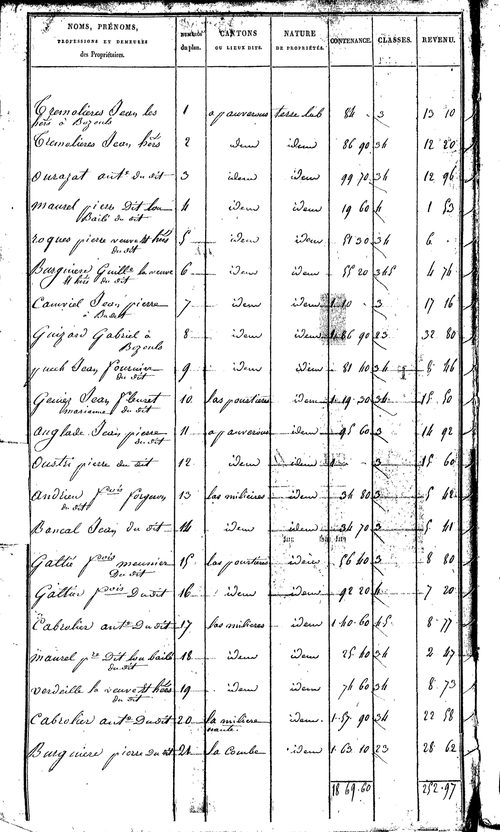 NOMS, PRÉNOMS, PROFESSIONS ET DEMEURES des Propriétaires. | NUMÉROS du plan. | CANTONS OU LIEUX DITS. | NATURE DE PROPRIÉTÉS. | CONTENANCE. | CLASSES. | REVENU.
Tremolieres Jean les 1 apauverous terre lab 84 - 3 13 10
hers à Bozouls
Tremolieres Jean hers 2 idem idem 86 90 34 12 20
ourazat ante du dit 3 idem idem 99 70 34 12 96
maurel pierre Dit lou 4 idem idem 19 60 4 1 53
Baile du dit
roques pierre veuve et hers 5 idem idem 51 30 34 6
du dit
Burguiere Guille la veuve 6 idem idem 55 20 345 4 76
et hers du dit
Jean pierre 7 idem idem 1 10 - 3 17 16
Guizard Gabriel à 8 idem idem 1 86 90 23 32 80
Bozouls
puech Jean fournier 9 idem idem 81 40 34 8 46
du dit
Jean 10 las poustieres idem 1 19 30 34 15 50
marianne du dit
anglade Jean pierre 11 apauverous idem 95 60 3 14 92
du dit
Oustri pierre du dit 12 idem idem 1 3 15 60
andrieu fcois forgeron 13 las milieires idem 34 80 3 5 42
du dit
Bancal Jean du dit 14 idem idem 34 70 3 5 41
Galtié fcois meunier 15 las poustieres idem 56 40 3 8 80
Du dit
Galtier fcois Du dit 16 idem idem 92 20 4 7 20
Cabrolier ante Du dit 17 las milieres idem 1 40 60 45 8 77
maurel pre Dit lou baile 18 idem idem 25 40 34 2 47
du dit
verdeille la veuve et hers 19 idem idem 74 60 34 8 73
du dit
Cabrolier ante Du dit 20 la miliere idem 1 57 90 34 22 58
haute
Burguiere pierre du dit 21 la Combe idem 1 63 10 23 28 62
18 69 60 252 97